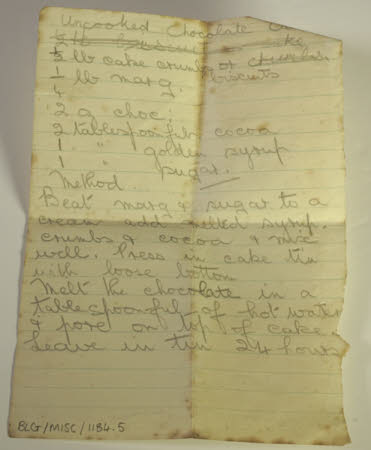 Uncooked Chocolate Cake
½ lb cake crumbs or crumbs.
biscuits
¼ lb marg.
2 oz choc.
2 tablespoonfuls cocoa
1 " golden syrup
1 " sugar.
Method.
Beat marg & sugar to a
cream add melted syrup.
crumbs & cocoa & mix
well. Press in cake tin
with loose bottom
Melt the chocolate in a
tablespoonful of hot water
& pore on top of cake.
Leave in tin 24 hours
BLG/MISC/1184.5